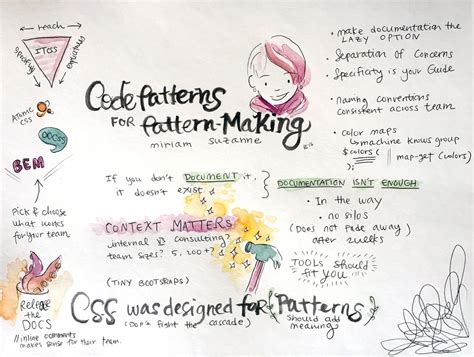 reach
ITCSS
specificity
explicitness
Atomic
CSS
OOCSS
BEM
Pick & choose
what works
for your team
Release
the
DOCS
//inline comments
makes sense for their team.
Code Patterns
FOR Pattern-Making
miriam suzanne
If you don't DOCUMENT it,
it doesn't exist
CONTEXT MATTERS
internal vs consulting?
team sizes? 5, 100+?
(TINY BOOTSTRAPS)
CSS was designed for Patterns
(Don't fight the cascade)
should add
meaning
• make documentation the
LAZY OPTION
• Separation of Concerns
• Specificity is your Guide
• naming conventions
consistent across team
• color maps
↳ machine knows group
$colors ( map-get (colors)
DOCUMENTATION ISN'T ENOUGH
• In the way
• no silos
(Does not fade away)
TOOLS should
fit you